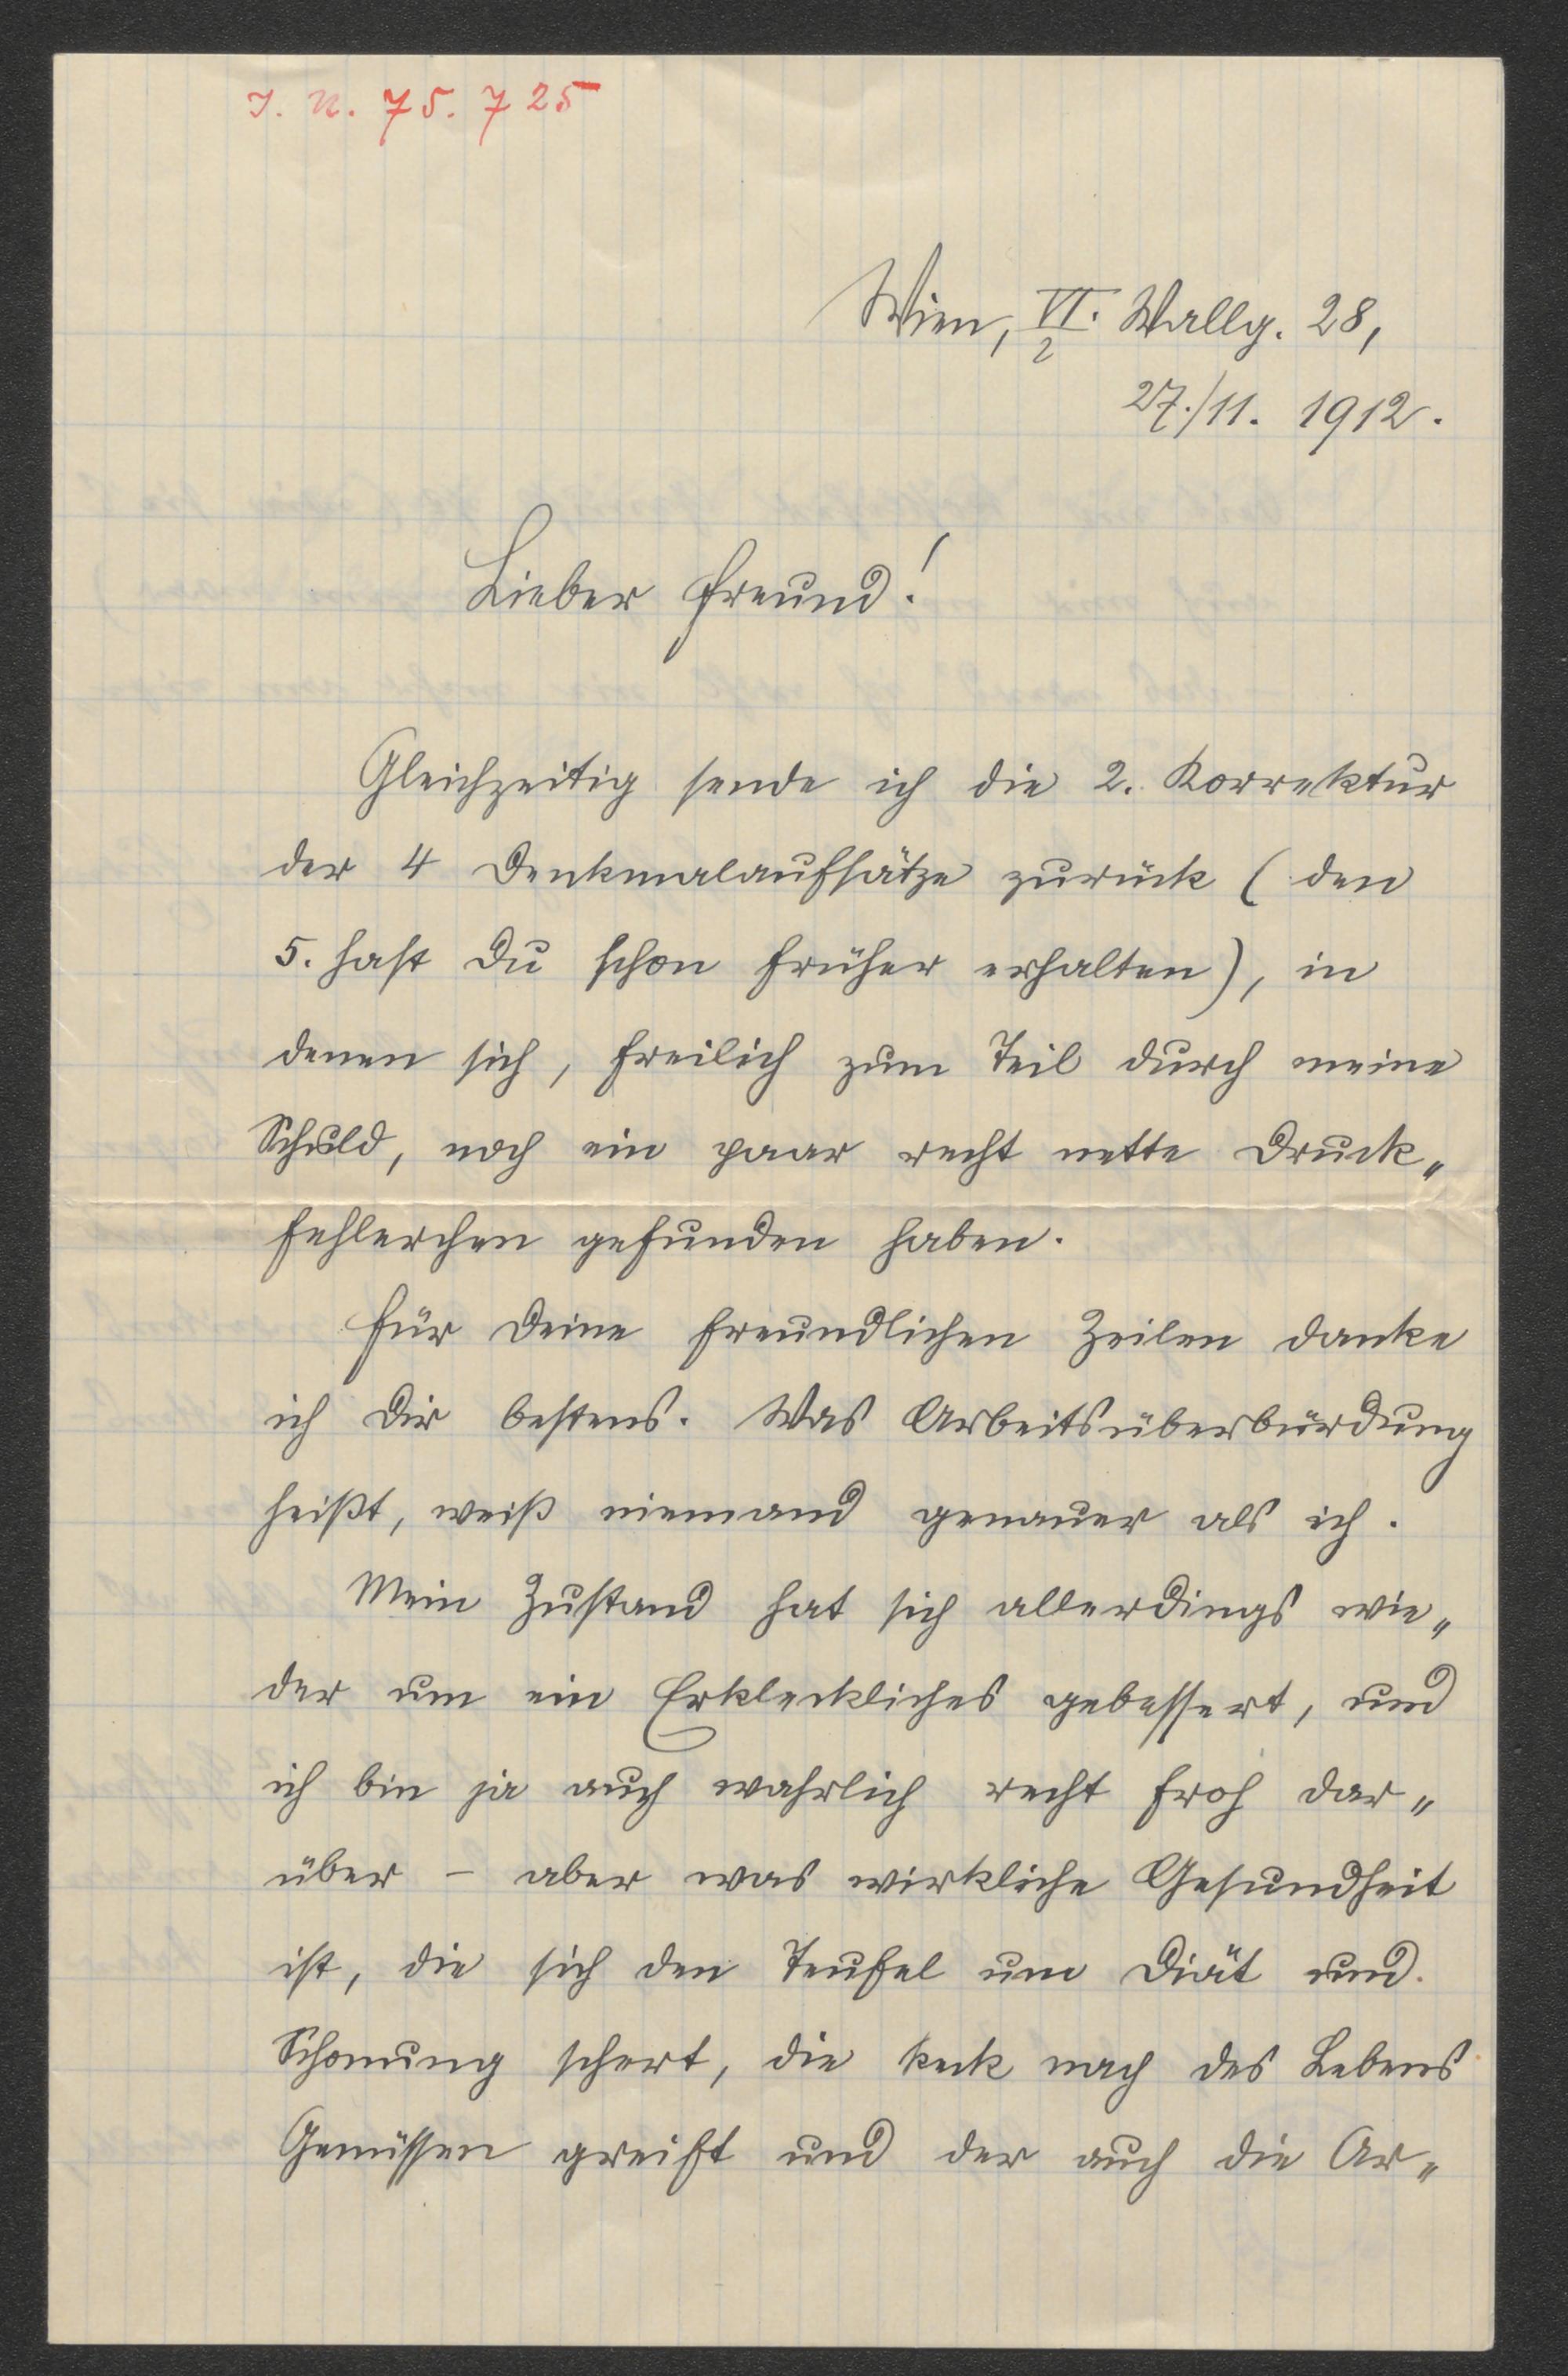 I. N. 75.725
Wien, VI/2. Wallg. 28,
27./11. 1912.
Lieber Freund!
Gleichzeitig sende ich die 2. Korrektur
der 4 Denkmalaufsätze zurück (den
5. hast Du schon früher erhalten), in
denen sich, freilich zum Teil durch meine
Schuld, noch ein paar recht nette Druck„
fehlerchen gefunden haben.
Für Deine freundlichen Zeilen danke
ich Dir bestens. Was Arbeitsüberbürdung
heißt, weiß niemand genauer als ich.
Mein Zustand hat sich allerdings wie„
der um ein Erkleckliches gebessert, und
ich bin ja auch wahrlich recht froh dar„
über – aber was wirkliche Gesundheit
ist, die sich den Teufel um Diät und
Schonung schert, die keck nach des Lebens
Genüssen greift und der auch die Ar„